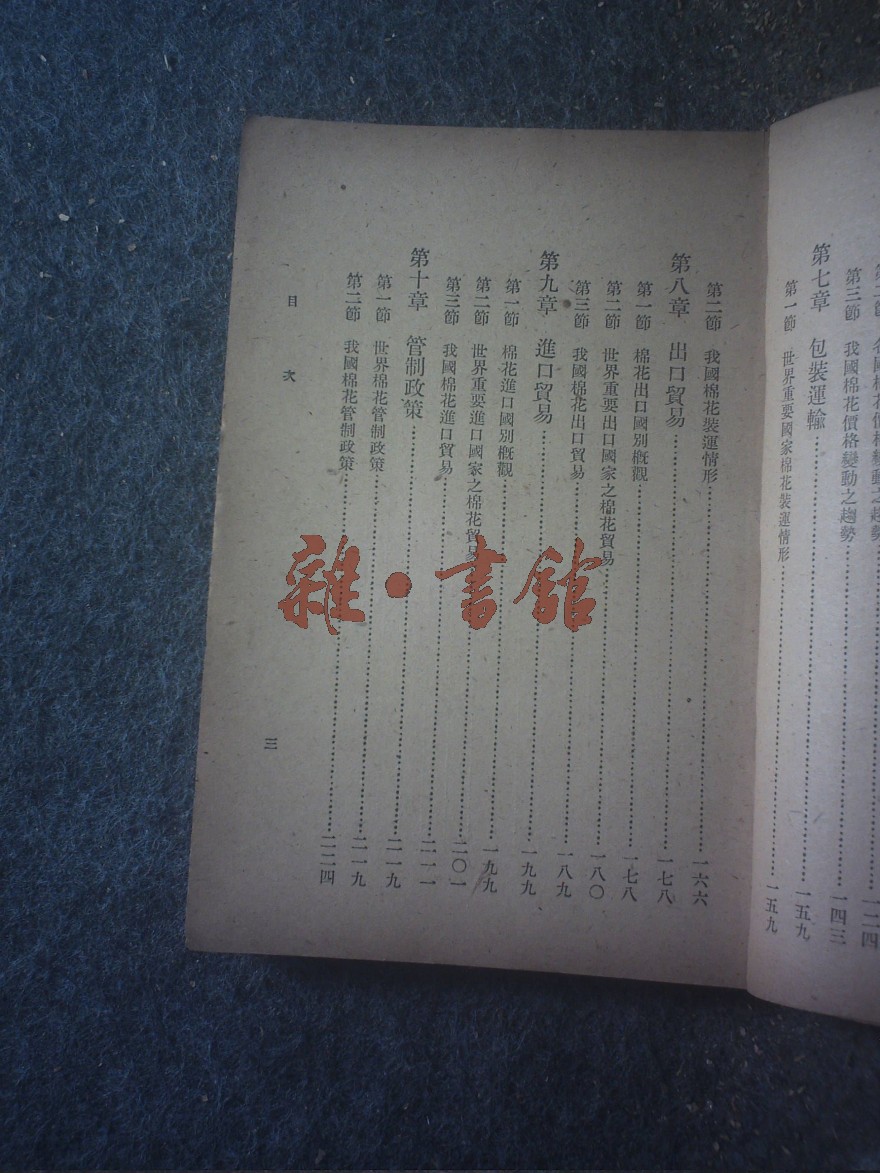 第二節 各國棉花價格變動之趨勢……一二四
第三節 我國棉花價格變動之趨勢……一四三
第七章 包裝運輸……一五九
第一節 世界重要國家棉花裝運情形……一五九
第二節 我國棉花裝運情形……一六六
第八章 出口貿易……一七八
第一節 棉花出口國別概觀……一七八
第二節 世界重要出口國家之棉花貿易……一八〇
第三節 我國棉花出口貿易……一八九
第九章 進口貿易……一九九
第一節 棉花進口國別概觀……一九九
第二節 世界重要進口國家之棉花貿易……二〇一
第三節 我國棉花進口貿易……二一一
第十章 管制政策……二一九
第一節 世界棉花管制政策……二一九
第二節 我國棉花管制政策……二二四
目次 三
雜·書館